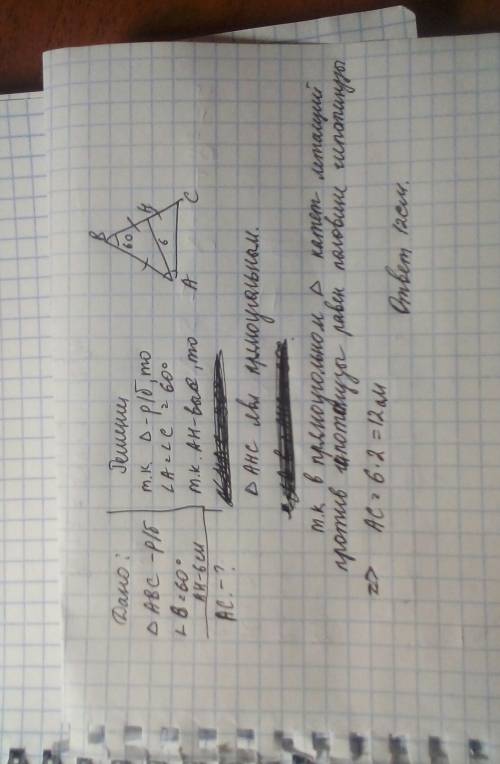 Дано:
△ ABC - р/б
∠B = 60°
AH - 6см
AC. - ?
Решение
т.к. △ - р/б, то
∠A = ∠C = 60°
т.к. AH - выс, то
△ AHC явл прямоугольном.
т.к в прямоугольном △ катет лежащий
против гипотенузы равен половине гипотинузы
=> AC = 6·2 = 12см
Ответ 12см.
B
60
H
6
A
C